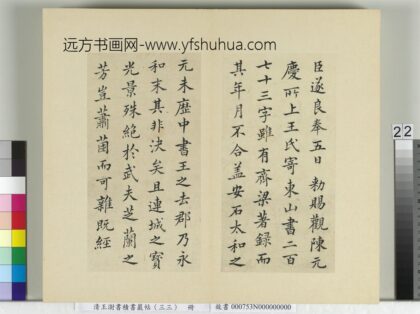 远方书画网-www.yfshuhua.com
臣遂良奉五日 勑賜觀陳元
慶所上王氏寄東山書二百
七十三字雖有齊梁著録而
其年月不合盖安石太和之
元未歷中書王之去郡乃永
和末其非決矣且連城之寳
光景殊絶於武夫芝蘭之
芳豈蕭茵而可雜既經
22
清王澍書積書巖帖（三三） 冊
故書 000753N000000000